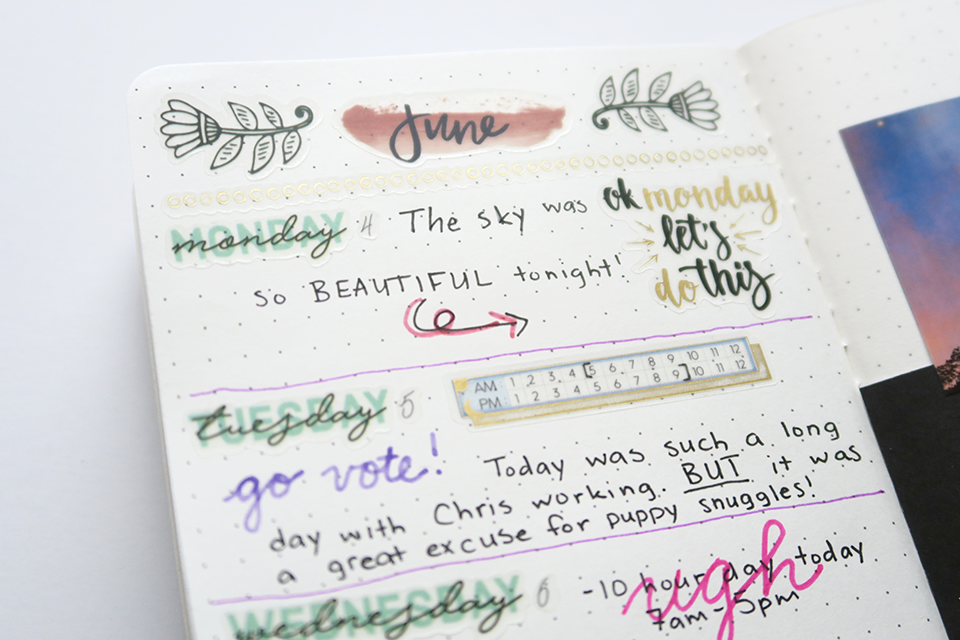 June
monday 4 The sky was
so BEAUTIFUL tonight!
ok monday
let's
do this
tuesday 5
AM 1 2 3 4 [5 6 7 8 9 10 11 12
PM 1 2 3 4 5 6 7 8 9] 10 11 12
go vote! Today was such a long
day with Chris working. BUT it was
a great excuse for puppy snuggles!
wednesday 6 -10 hour day today
7am-5pm
ugh